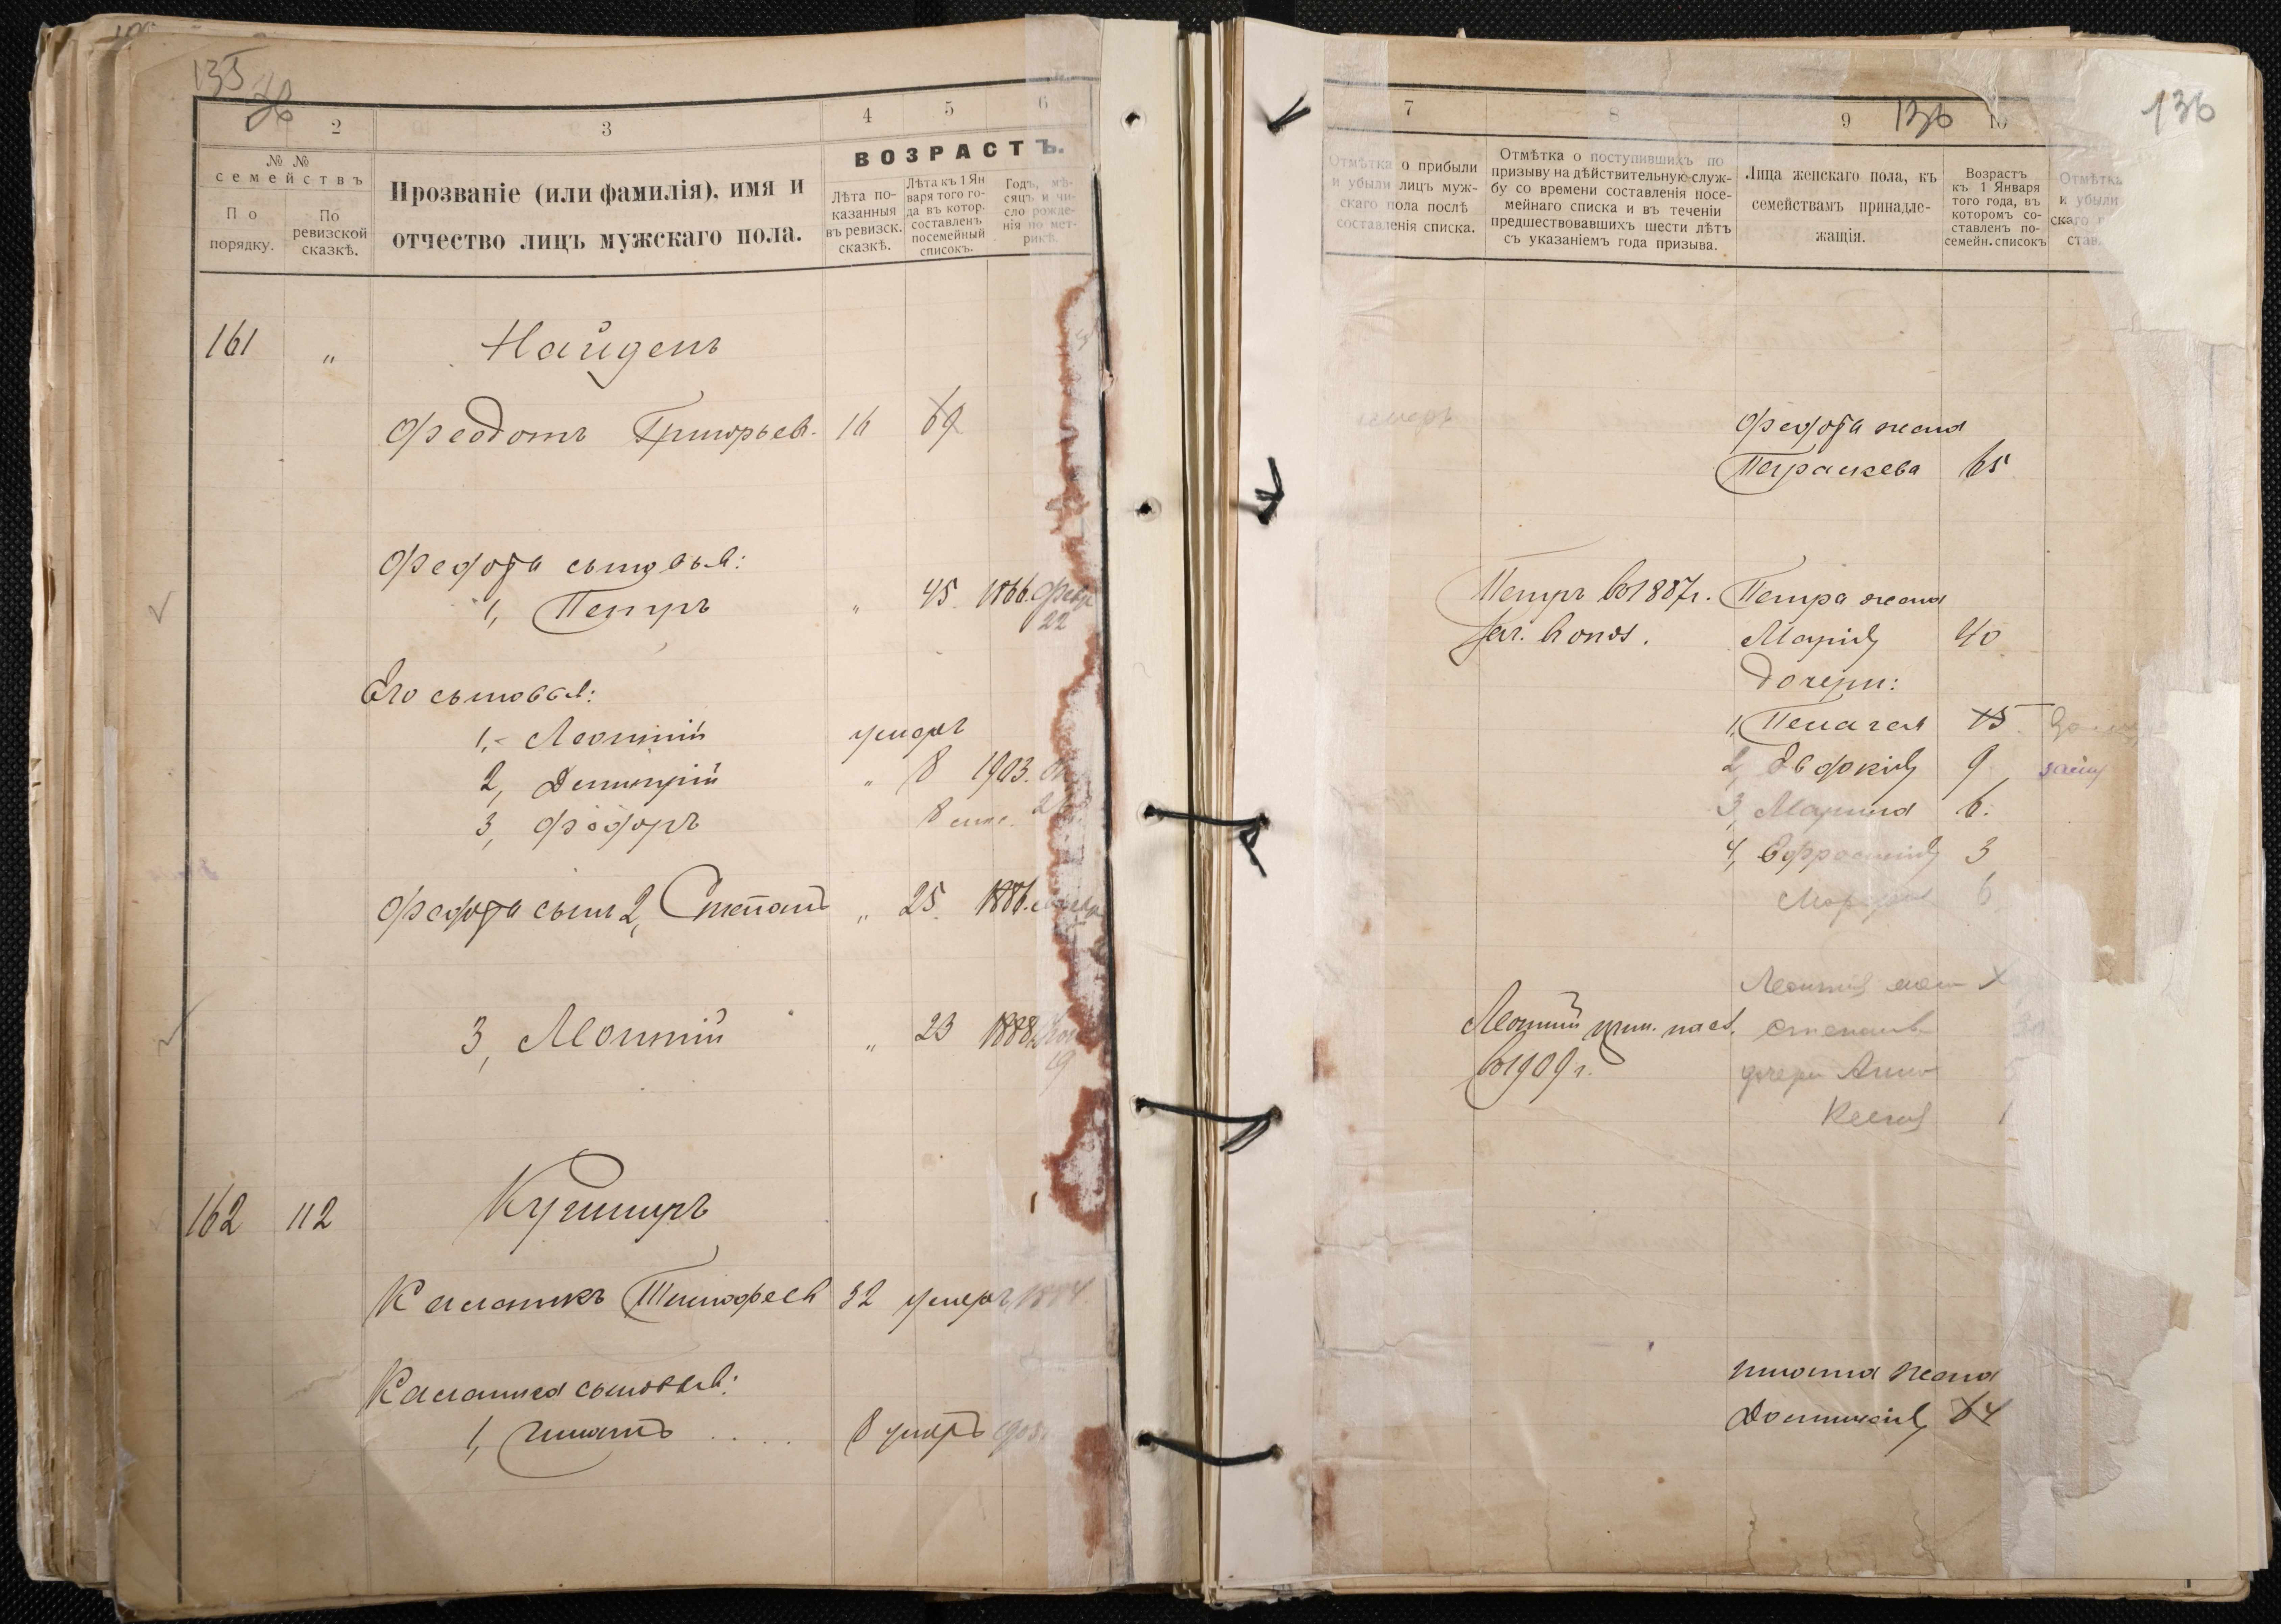 135
1
2
3
4
5
6
№ №
семействъ
По
порядку.
По
ревизской
сказкѣ.
Прозваніе (или фамилія), имя и
отчество лицъ мужскаго пола.
ВОЗРАСТЪ.
Лѣта по-
казанныя
въ ревизск.
сказкѣ.
Лѣта къ 1 Ян
варя того го-
да въ котор.
составленъ
посемейный
списокъ.
Годъ, мѣ-
сяцъ и чи-
сло рожде-
нія по мет-
рикѣ.
161 " Найденъ
Феодотъ Григорьев. 16 69
Федота сыновья:
1, Петръ " 45. 1866. Февр
22
Его сыновья:
1, Леонтій умеръ
2, Димитрій " 8 1903.
26
3, Фёдоръ 8 мѣс.
Федота сынъ 2, Степанъ " 25. 1886.
3, Леонтій " 23 1888.
19
162 112 Кушниръ
Калайникъ Тимофеев 32 умеръ 1884.
сыновья:
1, Игнатъ .... 8 умеръ
7
8
9
10
136
136
Отмѣтка о прибыли
и убыли лицъ муж-
скаго пола послѣ
составленія списка.
Отмѣтка о поступившихъ по
призыву на дѣйствительную служ-
бу со времени составленія посе-
мейнаго списка и въ теченіи
предшествовавшихъ шести лѣтъ
съ указаніемъ года призыва.
Лица женскаго пола, къ
семействамъ принадле-
жащія.
Возрастъ
къ 1 Января
того года, въ
которомъ со-
ставленъ по-
семейн. списокъ
Отмѣтка
и убыли
скаго п
став.
умеръ
Федота жена
Параскева 65
Петръ въ 1887 г. Петра жена
зач. в опол. Марія 40
Дочери:
1, Пелагея 15
2, Евдокія 9
3, Марина 6.
4, Ефросинія 3
6
Леонтій прин. на сл.
въ 1909 г.
дочери Анна
Ксенія 1
Игната жена
Домникія 64